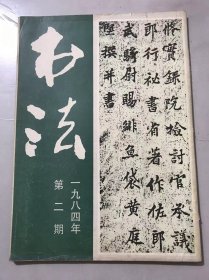 书法
一九八四年
第二期
脩實録院檢討官承議
郎行祕書省著作佐郎
武騎尉賜緋魚袋黄庭
堅撰并書